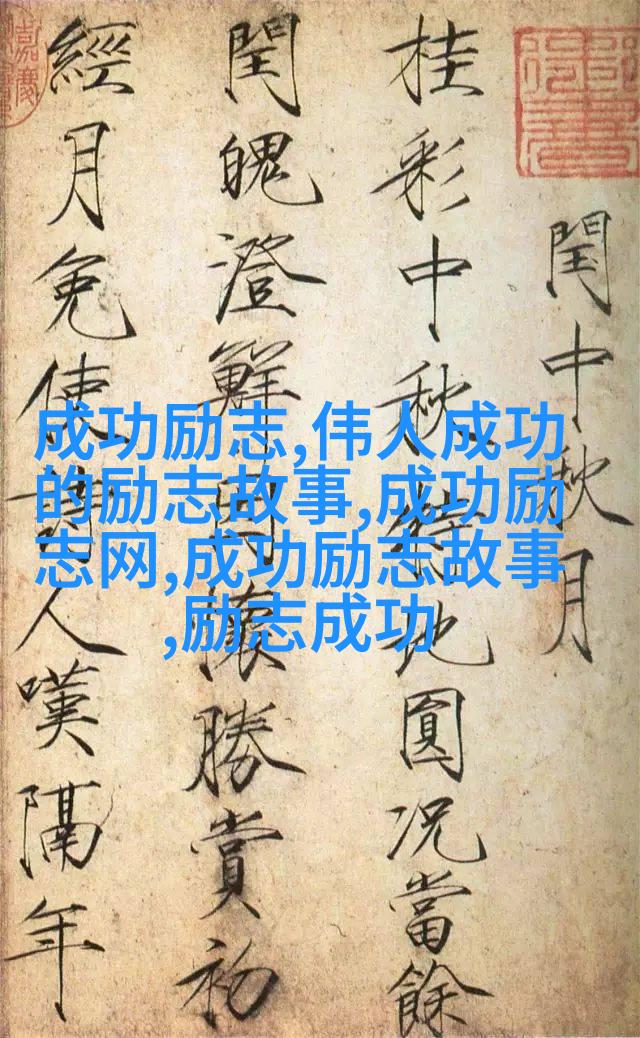 閏中秋月
桂彩中秋特地圓況當餘
閏魄澄鮮因懷勝賞初
經月免使詩人嘆隔年
嘉慶
成功励志,伟人成功
的励志故事,成功励
志网,成功励志故事
,励志成功